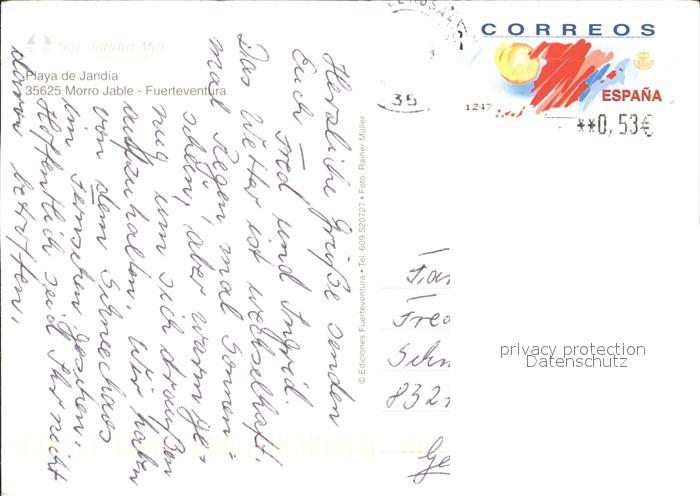 Sol Jandia Mar
Playa de Jandía
35625 Morro Jable - Fuerteventura
Herzliche Grüße senden
Euch Fred und Ingrid.
Das Wetter ist wechselhaft,
mal Regen, mal Sonnen=
schein, aber warm ge=
nug um sich draußen
aufzuhalten. Wir haben
von dem Schneechaos
im Fernsehen gesehen.
Hoffentlich seid Ihr nicht
davon betroffen.
© Ediciones Fuerteventura • Tel. 609 520727 • Foto: Rainer Müller
35
CORREOS
ESPAÑA
1247
**0,53€
Fred
832
privacy protection
Datenschutz